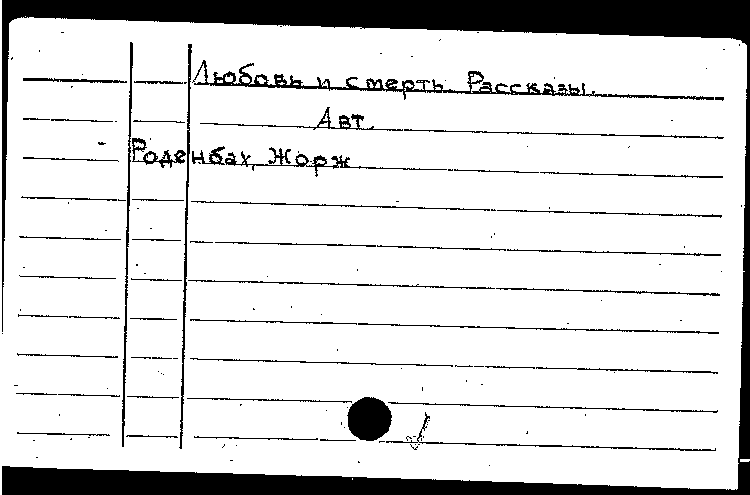 Любовь и смерть. Рассказы.
Авт.
Роденбах, Жорж